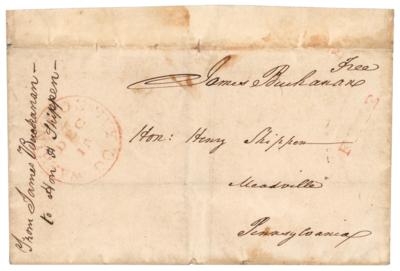 Free
James Buchanan
Hon: Henry Shippen
Meadville
Pennsylvania
From James Buchanan —
to Hon H Shippen —
DEC
15